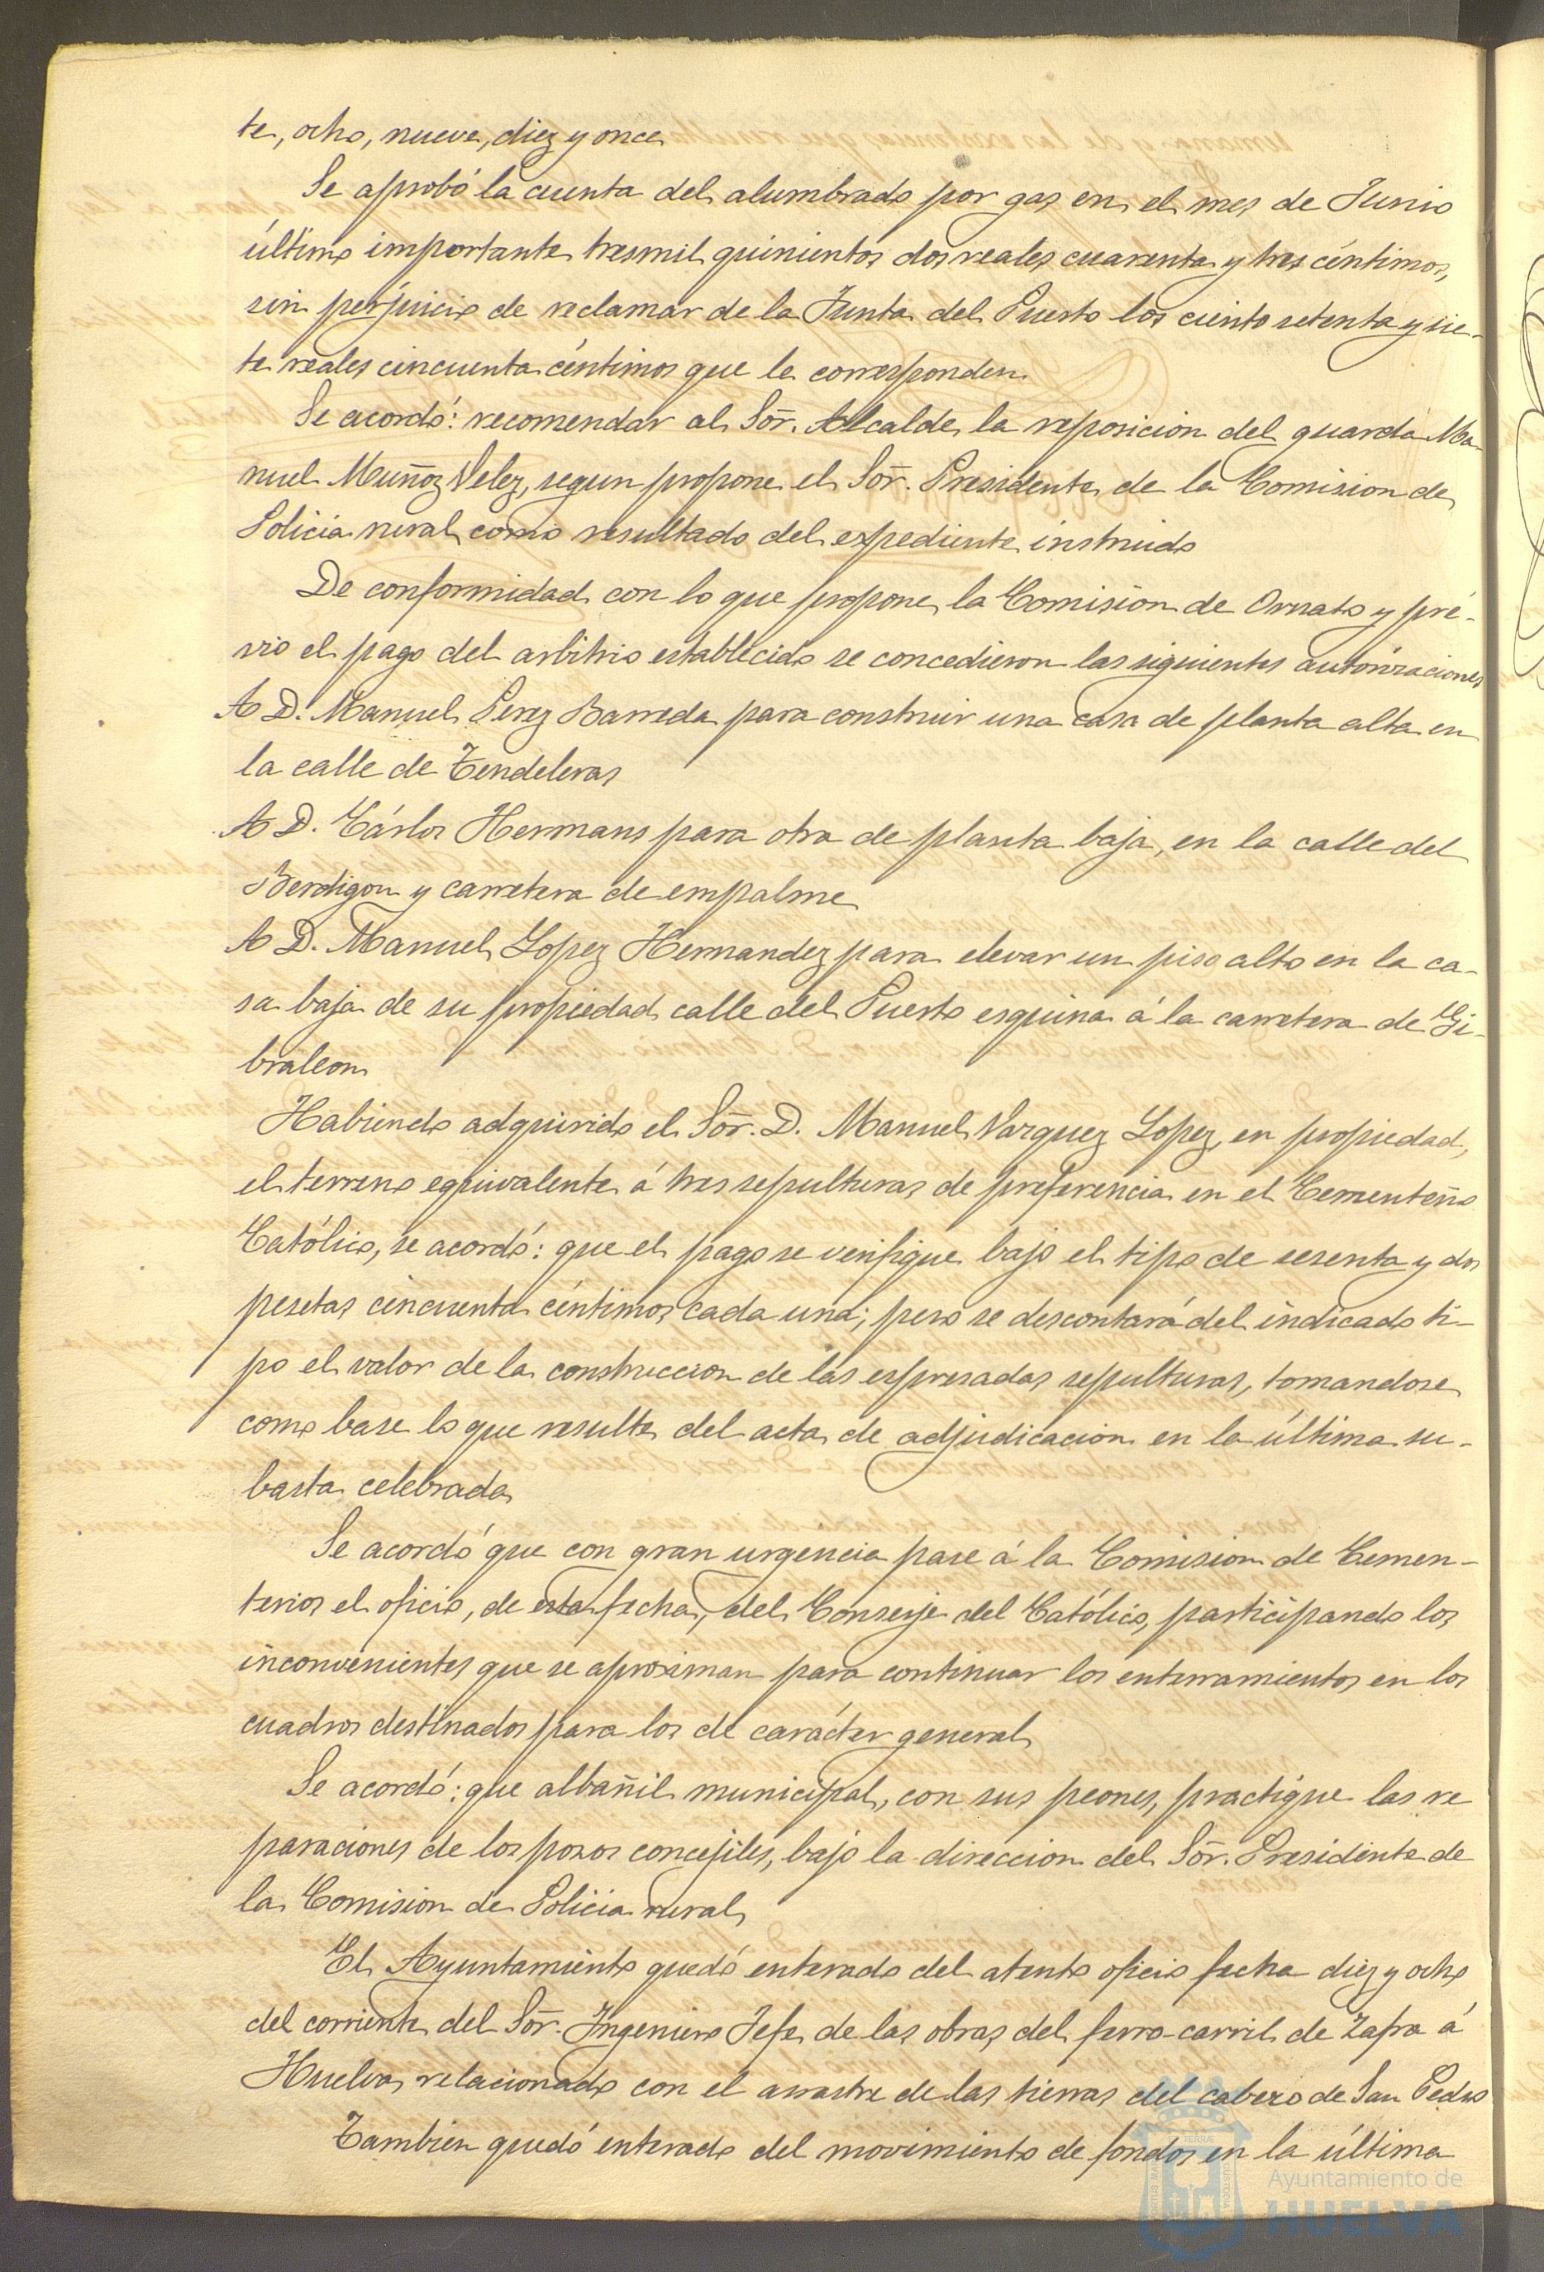 te, ocho, nueve, diez y once
Se aprobó la cuenta del alumbrado por gas en el mes de Junio
último importante tresmil quinientos dos reales cuarenta y tres céntimos,
sin perjuicio de reclamar de la Junta del Puerto los ciento setenta y sie-
te reales cincuenta céntimos que le corresponden
Se acordó: recomendar al Sõr. Alcalde la reposicion del guarda Ma-
nuel Muñoz Velez, segun propone el Sõr. Presidente de la Comision de
Policia rural como resultado del expediente instruido
De conformidad con lo que propone la Comision de Ornato y pré-
vio el pago del arbitrio establecido se concedieron las siguientes autorizaciones
A D. Manuel Perez Barreda para construir una casa de planta alta en
la calle de Tendeleras
A D. Cárlos Hermans para otra de planta baja, en la calle del
Berdigon y carretera de empalme
A D. Manuel Lopez Hernandez para elevar un piso alto en la ca-
sa baja de su propiedad calle del Puerto esquina á la carretera de Gi-
braleon
Habiendo adquirido el Sõr. D. Manuel Vazquez Lopez, en propiedad,
el terreno equivalente á tres sepulturas de preferencia en el Cementerio
Católico, se acordó: que el pago se verifique bajo el tipo de sesenta y dos
pesetas cincuenta céntimos cada una; pero se descontará del indicado ti-
po el valor de la construccion de las espresadas sepulturas, tomandose
como base lo que resulte del acta de adjudicacion en la última su-
basta celebrada
Se acordó que con gran urgencia pase á la Comision de Cemen-
terios el oficio, de esta fecha, del Conserje del Católico, participando los
inconvenientes que se aproximan para continuar los enterramientos en los
cuadros destinados para los de carácter general
Se acordó: que albañil municipal, con sus peones, practique las re
paraciones de los pozos concejiles, bajo la direccion del Sõr. Presidente de
la Comision de Policia rural
El Ayuntamiento quedó enterado del atento oficio fecha diez y ocho
del corriente del Sõr. Ingeniero Jefe de las obras del ferro-carril de Zafra á
Huelva relacionado con el arrastre de las tierras del cabezo de San Pedro
Tambien quedó enterado del movimiento de fondos en la última
Ayuntamiento de
HUELVA